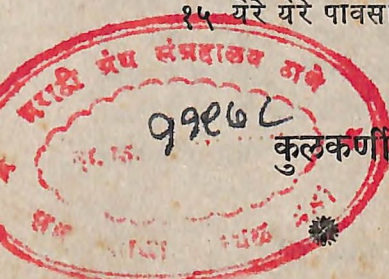 १५ येरे येरे पावस
मराठी ग्रंथ संग्रहालय ठाणे
११९७८
कुलकर्णी